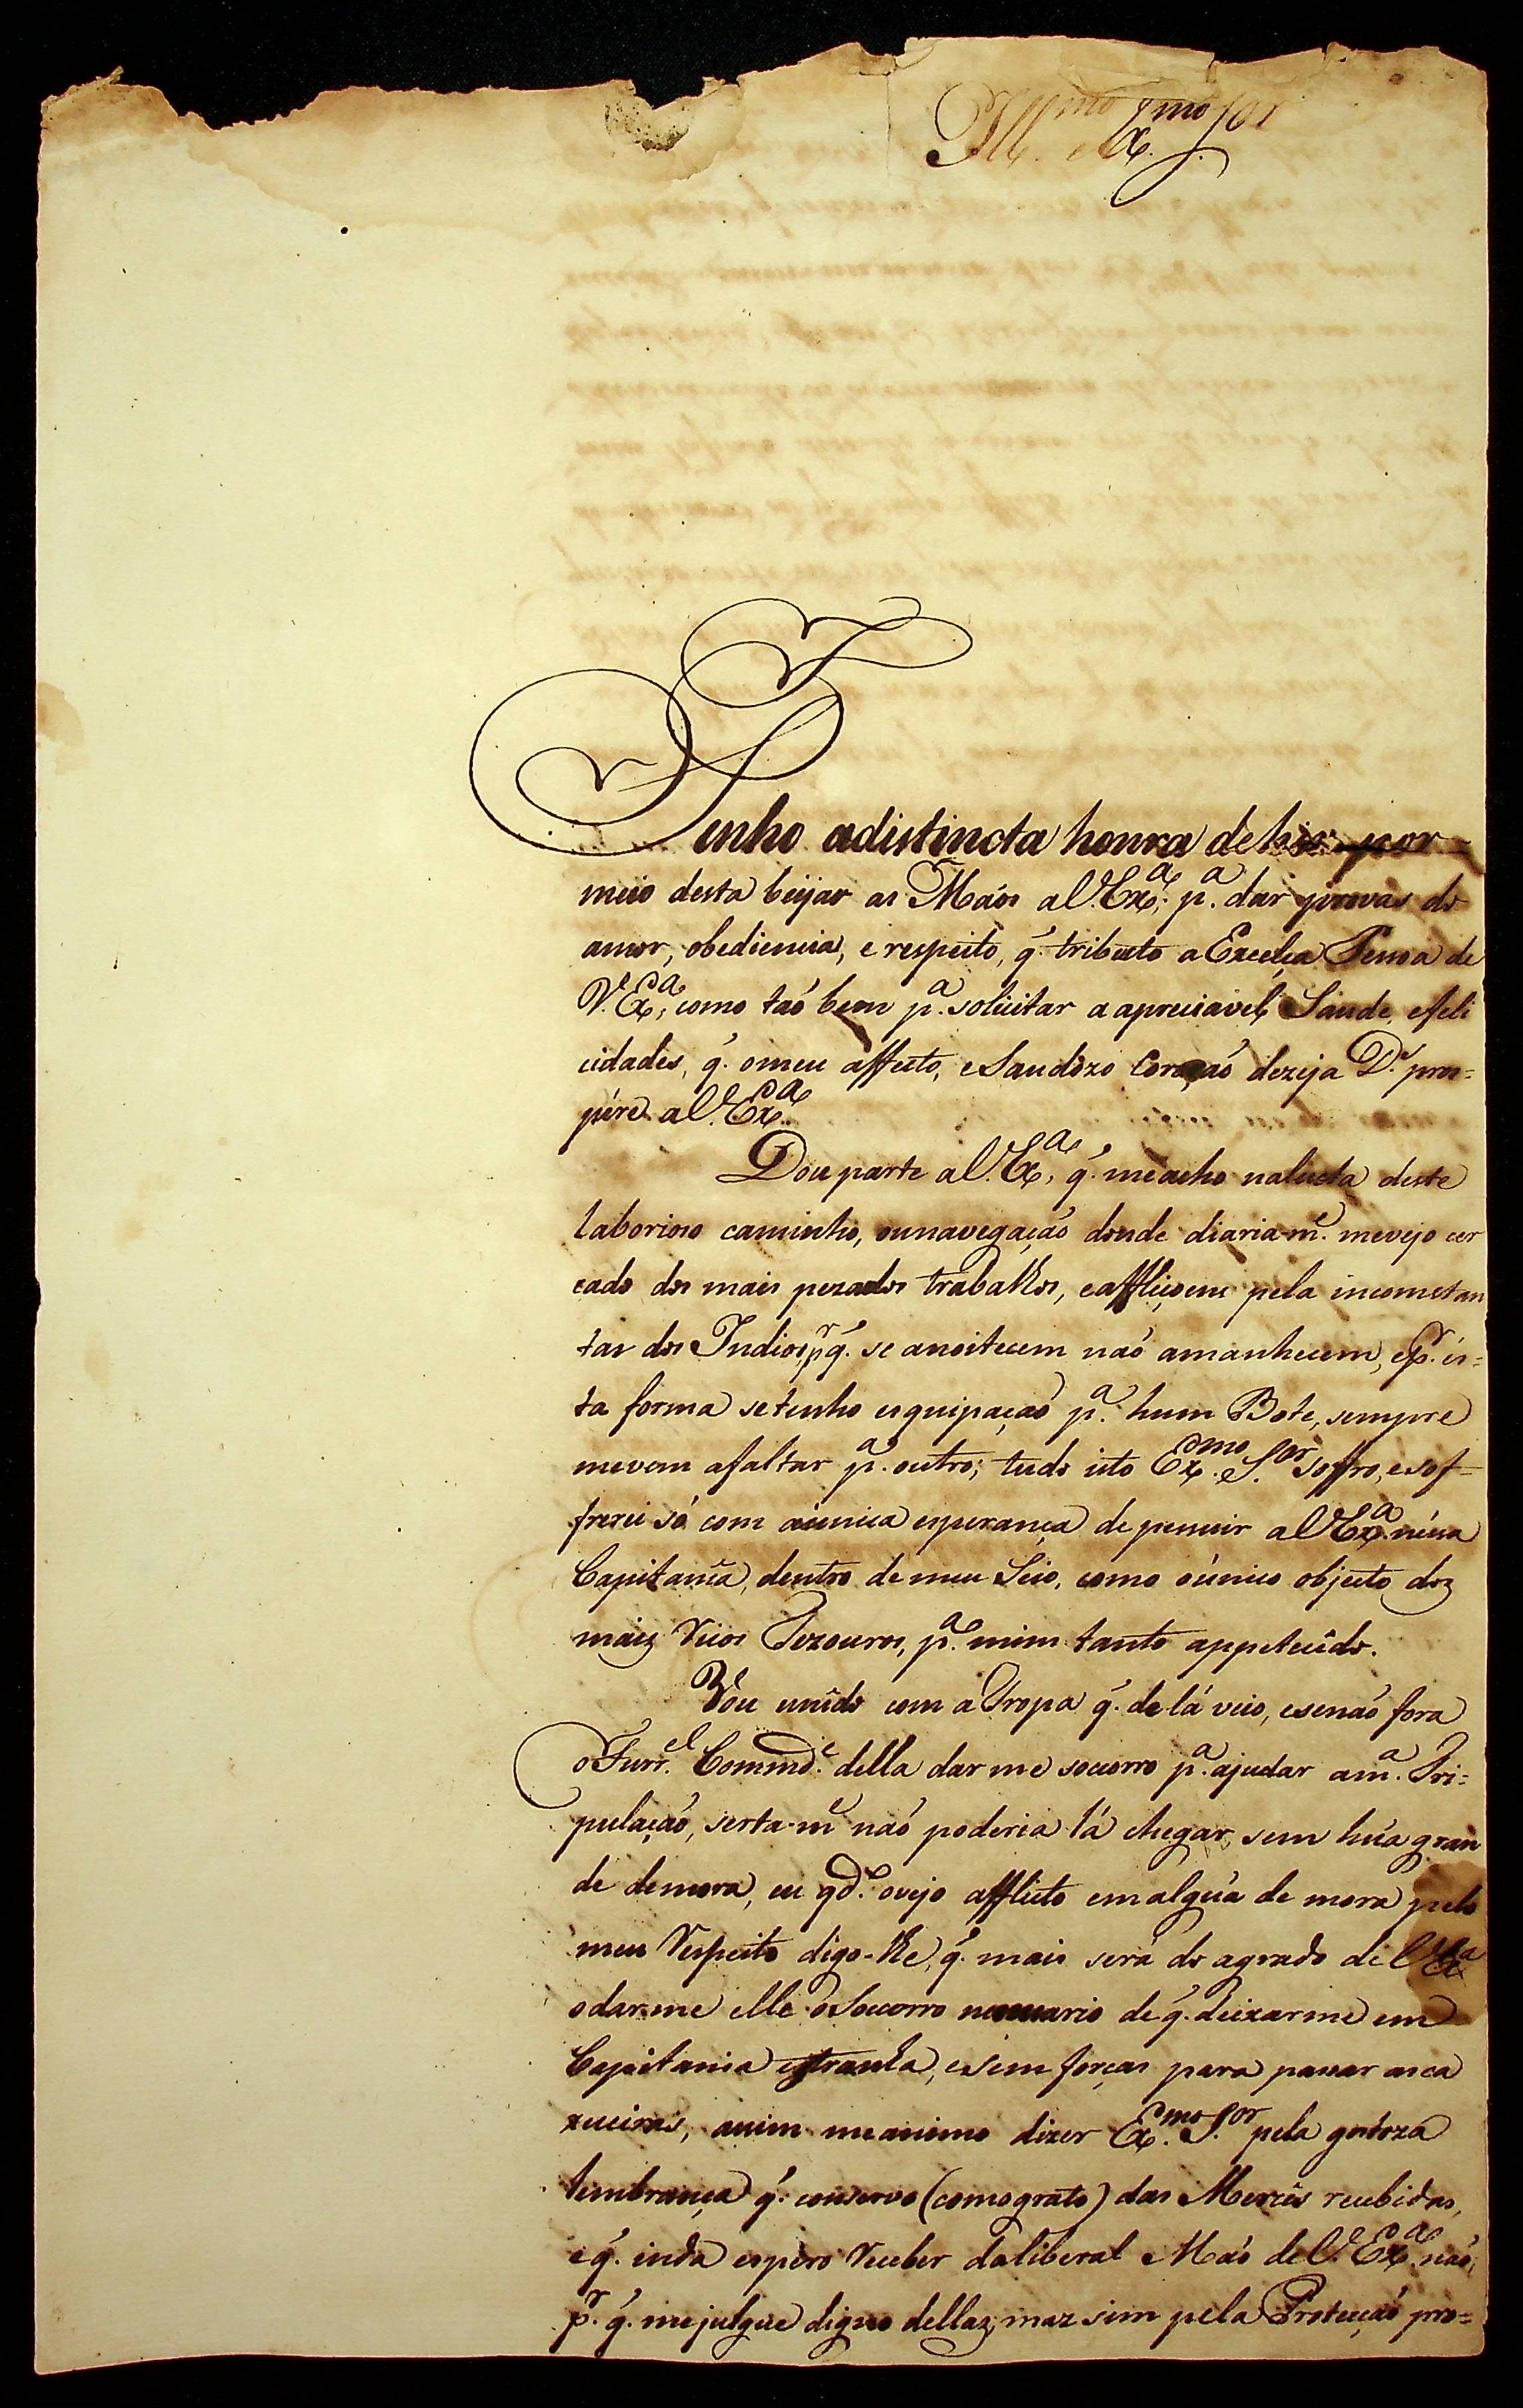 Ill.mo e Ex.mo S.or
Tenho adistincta honra de hir por
meio desta beijar as Maós aV.Ex.a; p.a dar provas do
amor, obediencia, e respeito, q. tributo a Excelça Pessoa de
V.Ex.a, como taó bem p.a solicitar a apreciavel Saude, efeli
cidades, q. omeu affecto, e Saudozo Coraçaó dezeja D.s pros=
pére aV.Ex.a
Dou parte aV.Ex.a, q. meacho nalucta deste
laborioso caminho, ounavegaçaó donde diaria-m.e mevejo cer
cado dos mais pezados trabalhos, eaffliçoens pela inconstan
tar dos Indios, p.r q. se anoitecem naó amanhecem, e p.r es=
ta forma setenho esquipaçaó p.a hum Bote, sempre
mevem afaltar p.a outro; tudo isto Ex.mo S.or soffro, e sof=
frerei só com aúnica esperança de pessuir aV.Ex.a néssa
Capitania, dentro de meu Seio, como oúnico objecto doz
maiz ricos Tezouros, p.a mim tanto appetecido.
Vou unido com a Tropa q. de lá veio, esenaó fora
o Furr.el Commd.e della dar me socorro p.a ajudar am.a Tri=
pulaçaó, serta-m.e naó poderia lá chegar, sem húa gran
de demora, eu qd.o ovejo afflicto em algúa de mora pelo
meu respeito digo-lhe, q. mais será do agrado de V.Ex.a
odar-me elle o Socorro necessario de q. deixar me em
Capitania estranha, esem forças para passar asca
xueiras, assim meanimo dizer Ex.mo S.or pela gostoza
lembrança q. conservo (como grato) das Mercês recebidas,
e q. inda espero receber daliberal Maó de V.Ex.a naó,
p.r q. mejulgue digno dellaz, maz sim pela Protecçaó pro=